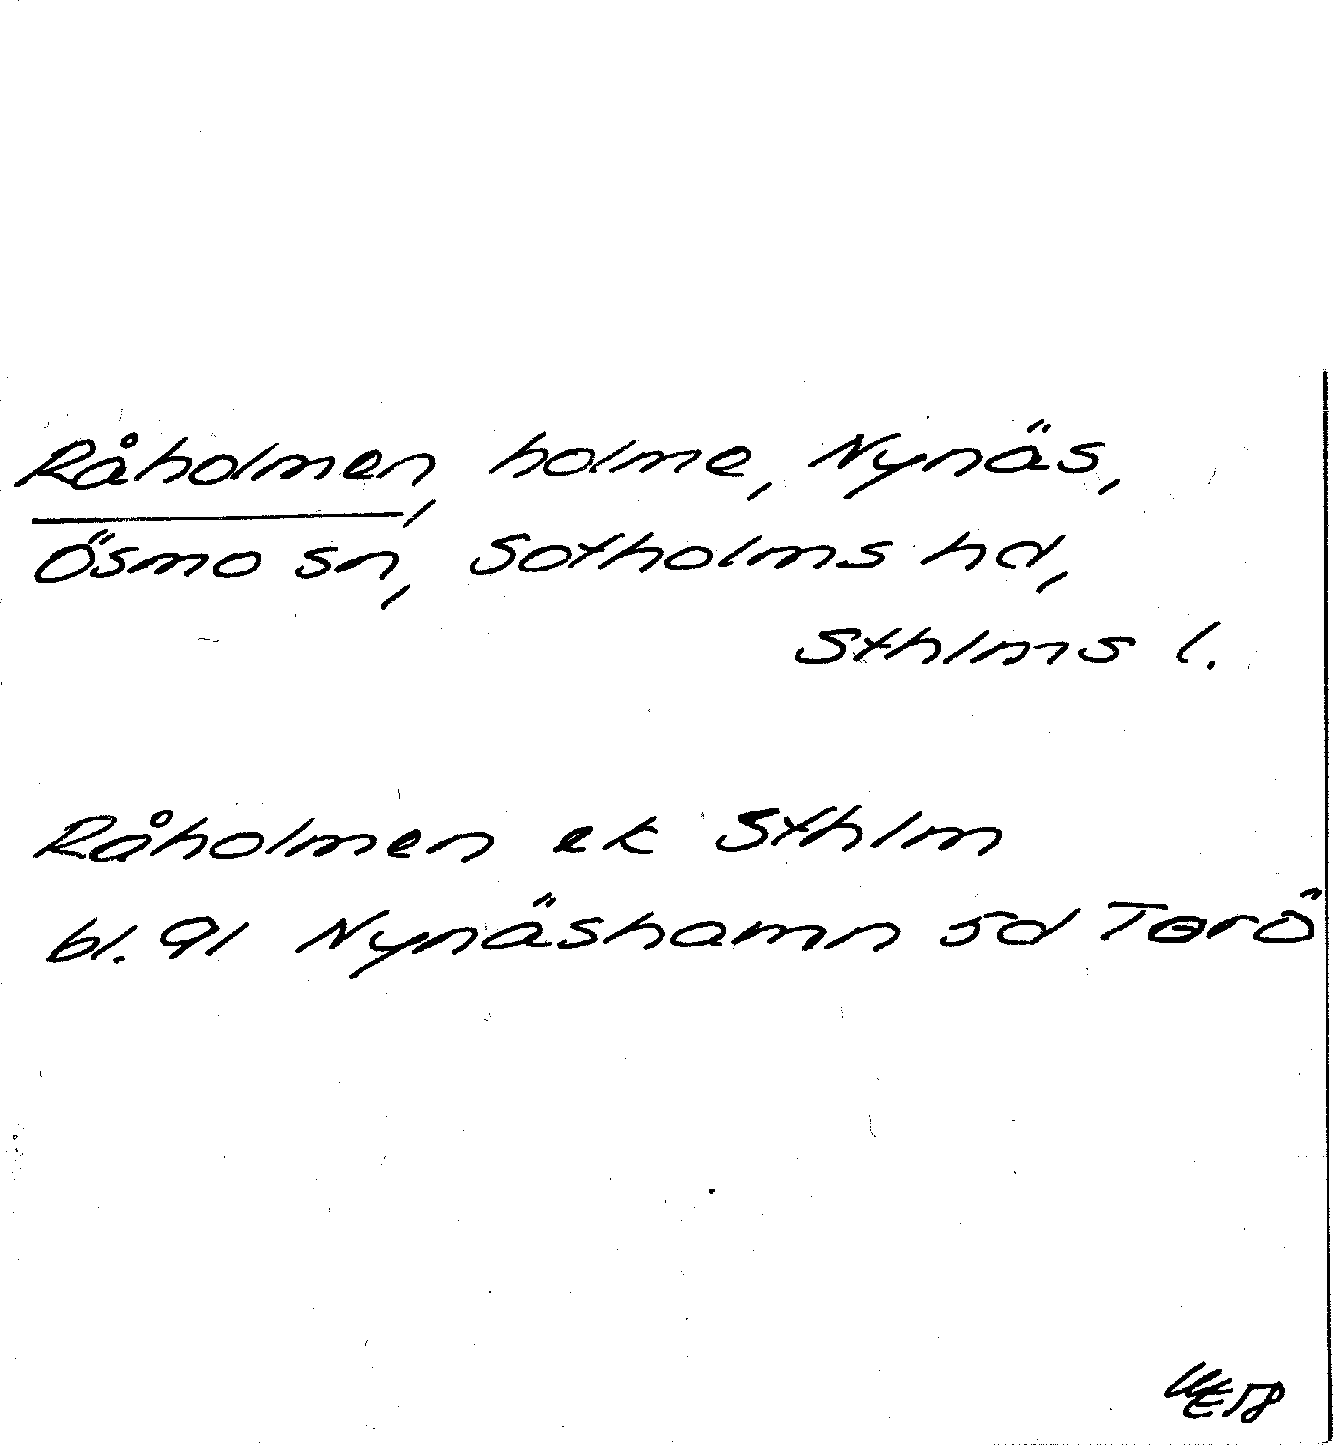 Råholmen, holme, Nynäs,
Ösmo sn, Sotholms hd,
Sthlms l.
Råholmen ek Sthlm
bl. 91 Nynäshamn sd Torö